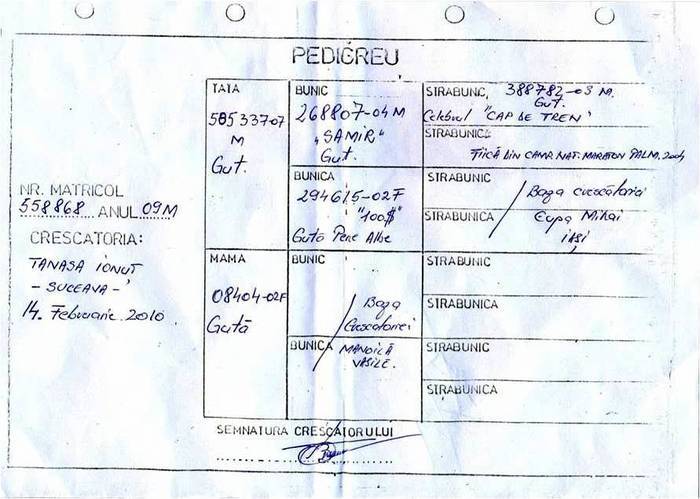 PEDIGREU
NR. MATRICOL
558868 ANUL 09M
CRESCATORIA:
TANASA IONUT
- SUCEAVA -
14. Februarie 2010
TATA
5853707
M
Gut.
BUNIC
268807-04M
"SAMIR"
Gut.
BUNICA
294615-02F
"100$"
Gută Pene Albe
MAMA
08404-02F
Gută
BUNIC
Baza
Crescătoriei
BUNICA
MANOILĂ
VASILE.
STRABUNIC, 388782-03 M.
Gut.
Celebrul "CAP DE TREN"
STRABUNICA
FIICĂ DIN CAMP. NAT. MARATON PALM. 2004
STRABUNIC
Baza crescătoriei
STRABUNICA
Cupa Mihai
IAȘI
STRABUNIC
STRABUNICA
STRABUNIC
STRABUNICA
SEMNATURA CRESCATORULUI